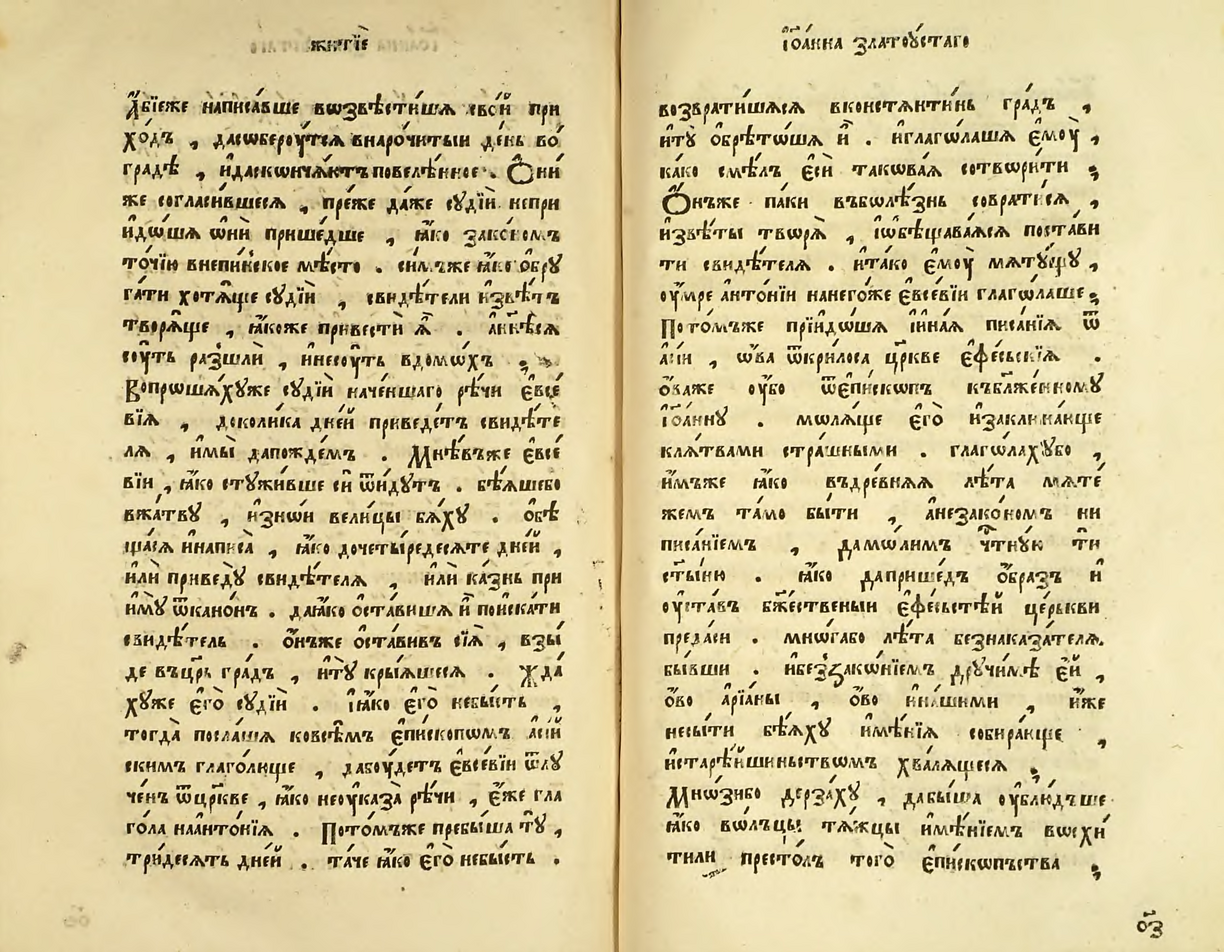 житїѐ
а҆́бїеже написа́вше вѡзвѣсти́шѧ свои҆̀ при
хо́дъ , дасѡберꙋ́тсѧ внарочи́тыи де́нь во
гра́дѣ , и҆даскѡнчѧ́ютъ повелѣ́нное . Ѻ҆ни́
же согласи́вшесѧ , пре́же да́же сꙋдїѝ непри
идо́шѧ ѡ҆нѝ прише́дше , ꙗ҆́ко зако́номъ
то́чїю внепи́нское мѣ́сто . си́мъже ꙗ҆́ко ѻ҆брꙋ
га́ти хотѧ́ще сꙋдїѝ , свидѣ́тели и҆звѣ́тъ
творѧ́ще , ꙗ҆́коже привестѝ ѧ҆̀ . а҆ннѣ́сѧ
сꙋ́ть разшлѝ , и҆несꙋ́ть вдомѡ́хъ ;
Вопроша́хꙋже сꙋдїѝ наче́ншаго рѣ́чи є҆ѵсе́
вїѧ , доколи́ка дне́й приведе́тъ свидѣ́те
лѧ , и҆мы̀ дапожде́мъ . Мнѣ́въже є҆ѵсе́
вїи , ꙗ҆́ко стꙋжи́вше си̏ ѿи́дꙋтъ . бѣѧ́шебо
вжа́твꙋ , и҆зно́и вели́цы бѧ́хꙋ . ѻ҆бѣ
ща́сѧ и҆написа̀ , ꙗ҆́ко дочеты́редесѧте дне́й ,
и҆лѝ приведꙋ̀ свидѣ́телѧ , и҆лѝ ка́знь при
имꙋ̀ ѿкано́нъ . даꙗ҆́ко ѻ҆ста́вишѧ и҆̀ поиска́ти
свидѣ́тель . ѻ҆́нъже ѻ҆ста́вивъ сїѧ̀ , взы́
де въцр҃ь гра́дъ , и҆тꙋ̀ кры́ѧшесѧ . Жда́
хꙋже є҆го̀ сꙋдїѝ . і҆ꙗ҆́ко є҆го̀ небы́сть ,
тогда̀ посла́шѧ ковсѣ́мъ є҆пи́скопомъ а҆сі́й
скимъ глаго́лище , дабꙋ́детъ є҆ѵсе́вїи ѿлꙋ
че́нъ ѿцр҃кве , ꙗ҆́ко неꙋказа̀ рѣ́чи , є҆́же гла
го́ла наанто́нїѧ . Пото́мъже пребы́ша тꙋ̀ ,
три́десѧть дне́й . та́че ꙗ҆́ко є҆го̀ небы́сть .
і҆ѡа́нна златоꙋ́стаго
возврати́шѧсѧ вконстѧнти́нь гра́дъ ,
и҆тꙋ̀ ѻ҆брѣто́шѧ и҆̀ . и҆глаго́лашѧ є҆мꙋ̀ ,
ка́ко смѣ́лъ є҆сѝ такова́ѧ сотвори́ти ;
Ѻ҆́нъже па́ки въболѣ́знь соврати́сѧ ,
и҆звѣ́ты творѧ̀ , і҆ѡбѣщава́ѧсѧ поста́ви
ти свидѣ́телѧ . и҆та́ко є҆мꙋ̀ мѧтꙋ́щꙋ ,
ᲂу҆́мре а҆нто́нїи нанего́же є҆ѵсе́вїи глаго́лаше ;
Пото́мъже прїидо́шѧ и҆ина́ѧ писа́нїѧ ѿ
а҆сі́и , ѡ҆́ва ѿкри́лоса цр҃кве є҆фе́сьскїѧ .
ѻ҆́важе ᲂу҆́бо ѿепи́скопъ къбл҃же́нномꙋ
і҆ѡа́ннꙋ . молѧ́ще є҆го̀ и҆заклина́юще
клѧ́твами стра́шными . глаго́лахꙋбо ,
и҆́мъже ꙗ҆́ко въдре́внѧѧ лѣ́та мѧте
же́мъ та́мо бы́ти , а҆незако́номъ ни
писа́нїемъ , дамо́лимъ чт҃нꙋю ти
ст҃ы́ню . ꙗ҆́ко даприше́дъ ѻ҆́бразъ и҆
ᲂу҆ста́въ бж҃е́ственыи є҆фе́сьстѣй це́рькви
преда́си . мно́габо лѣ́та безнаказа́телѧ
бы́вши . и҆беззако́нїемъ дрꙋчи́мѣ є҆́й ,
ѻ҆́во а҆рїа́ны , ѻ҆́во и҆на́шими , и҆̀же
несы́ти бѣ́ѧхꙋ и҆мѣ́нїѧ собира́юще ,
и҆старѣ́йшиньствомъ хва́лѧщесѧ ;
Мно́зибо дерза́хꙋ , дабы́ша ᲂу҆блю́дъше
ꙗ҆́ко во́лъцы тѧ́жцы и҆мѣ́нїемъ восхи́
тили престо́лъ того̀ є҆пи́скопьства ;
о҃з